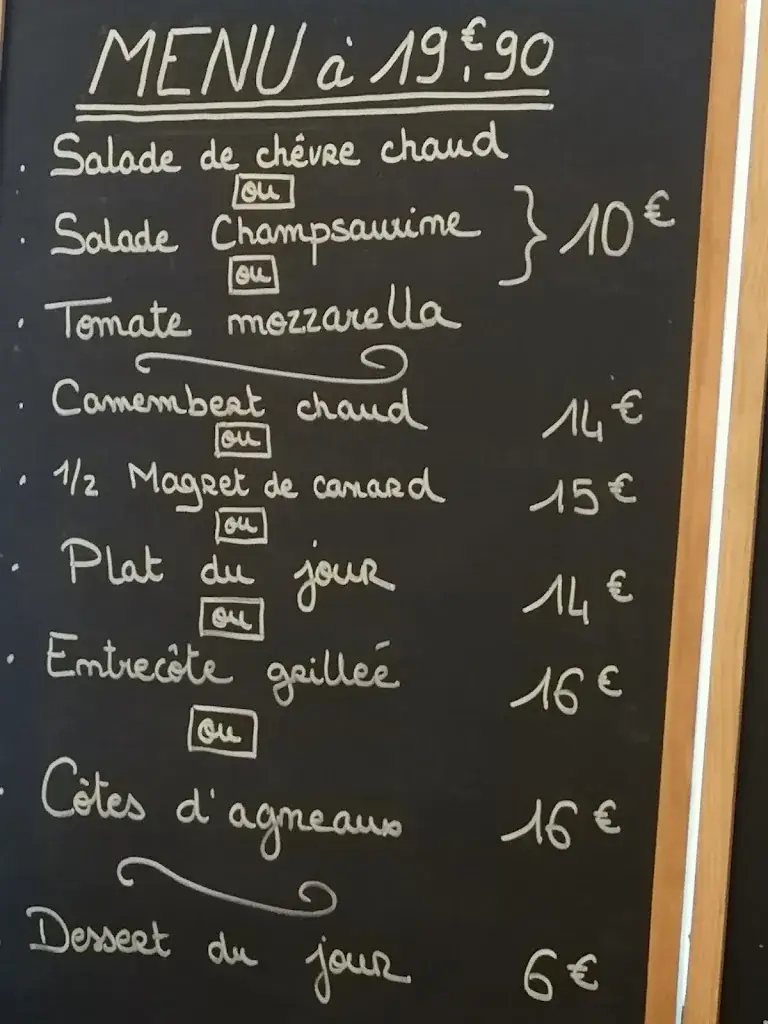 MENU à 19€.90
. Salade de chêvre chaud
ou
. Salade Champsaurine } 10€
ou
. Tomate mozzarella
. Camembert chaud 14€
ou
. 1/2 Magret de canard 15€
ou
. Plat du jour 14€
ou
. Entrecôte grilleé 16€
ou
. Côtes d'agneaux 16€
. Dessert du jour 6€